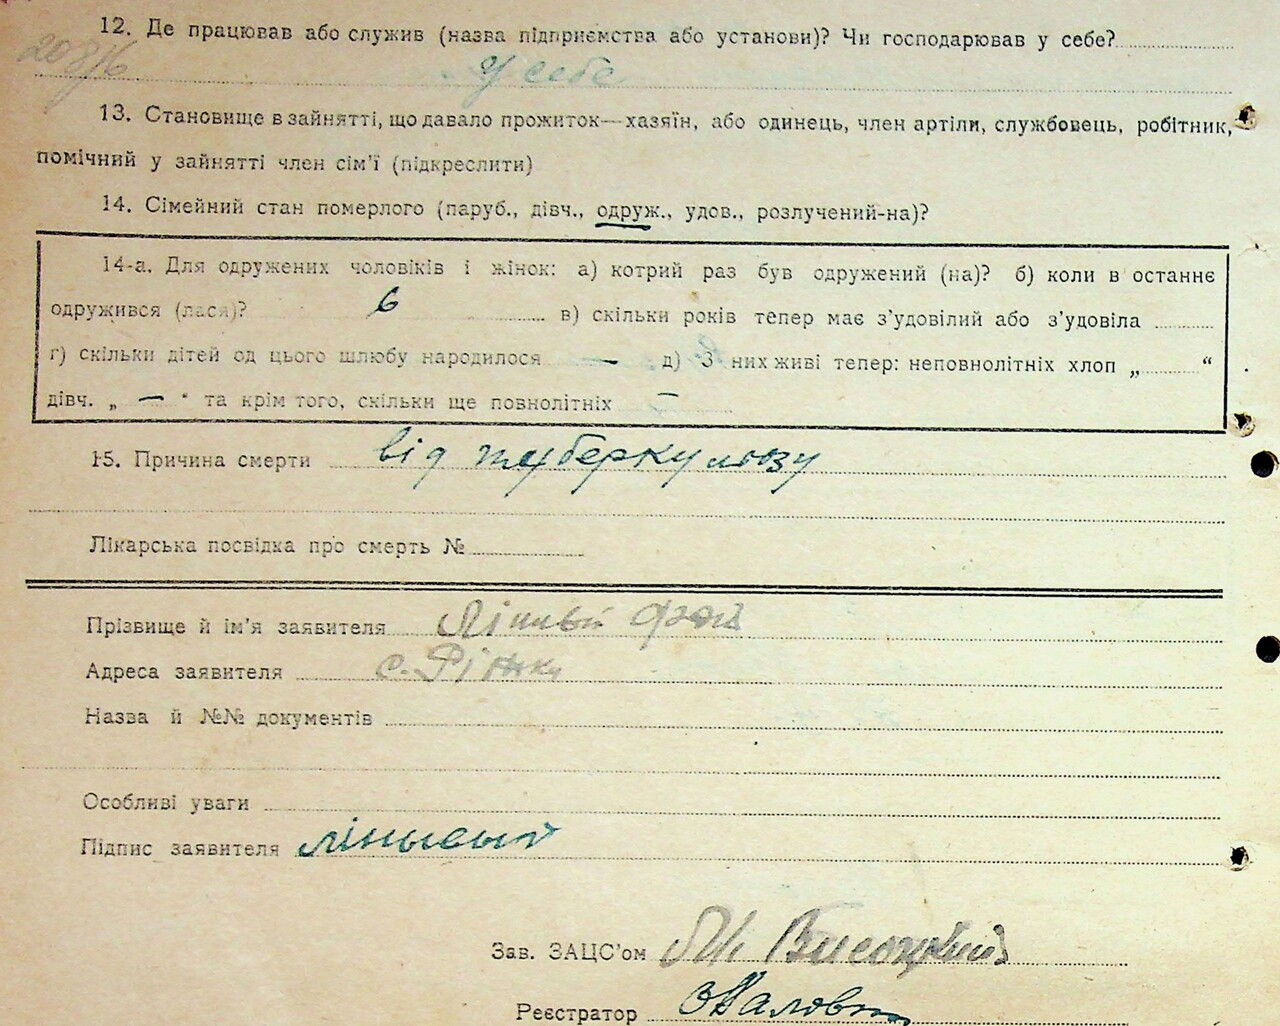 12. Де працював або служив (назва підприємства або установи)? Чи господарював у себе?
У себе
13. Становище в зайнятті, що давало прожиток—хазяїн, або одинець, член артіли, службовець, робітник,
помічний у зайнятті член сім'ї (підкреслити)
14. Сімейний стан померлого (паруб., дівч., одруж., удов., розлучений-на)?
14-а. Для одружених чоловіків і жінок: а) котрий раз був одружений (на)? б) коли в останнє
одружився (лася)? 6 в) скільки років тепер має з'удовілий або з'удовіла
г) скільки дітей од цього шлюбу народилося — д) З них живі тепер: неповнолітніх хлоп „ “
дівч. „ — “ та крім того, скільки ще повнолітніх —
15. Причина смерти від туберкульозу
Лікарська посвідка про смерть №
Прізвище й ім'я заявителя
Адреса заявителя с.
Назва й №№ документів
Особливі уваги
Підпис заявителя
Зав. ЗАЦС'ом Висоцкий
Реєстратор